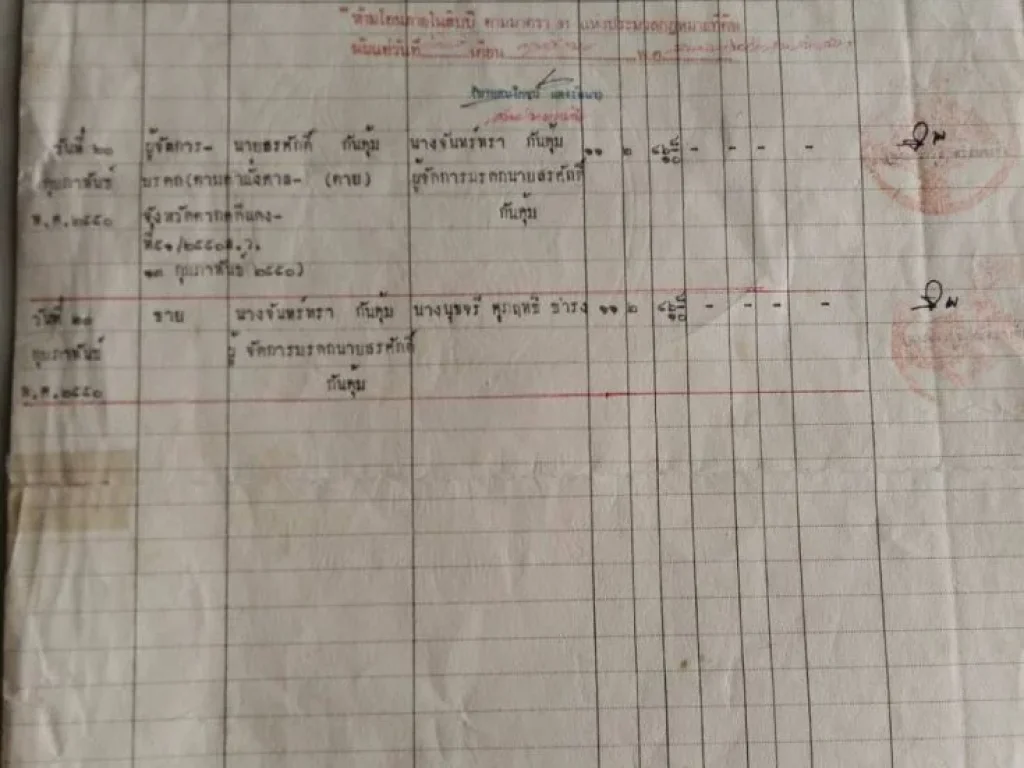 ห้ามโอนภายในสิบปี ตามมาตรา ๓๑ แห่งประมวลกฎหมายที่ดิน
นับแต่วันที่ เดือน พ.ศ.
วันที่ ๒๐ ผู้จัดการ- นายสรศักดิ์ กันคุ้ม นางจันทร์ทรา กันคุ้ม ๑๑ ๒ - - - -
กุมภาพันธ์ มรดก(ตามคำสั่งศาล- (ตาย) ผู้จัดการมรดกนายสรศักดิ์
พ.ศ.๒๕๕๐ จังหวัดตากคดีแดง- กันคุ้ม
ที่๕๑/๒๕๕๐ล.ว.
๑๓ กุมภาพันธ์ ๒๕๕๐)
วันที่ ๒๐ ขาย นางจันทร์ทรา กันคุ้ม นางนุชจรี ศุภฤทธิ์ ธำรง ๑๑ ๒ - - - -
กุมภาพันธ์ ผู้ จัดการมรดกนายสรศักดิ์
พ.ศ.๒๕๕๐ กันคุ้ม